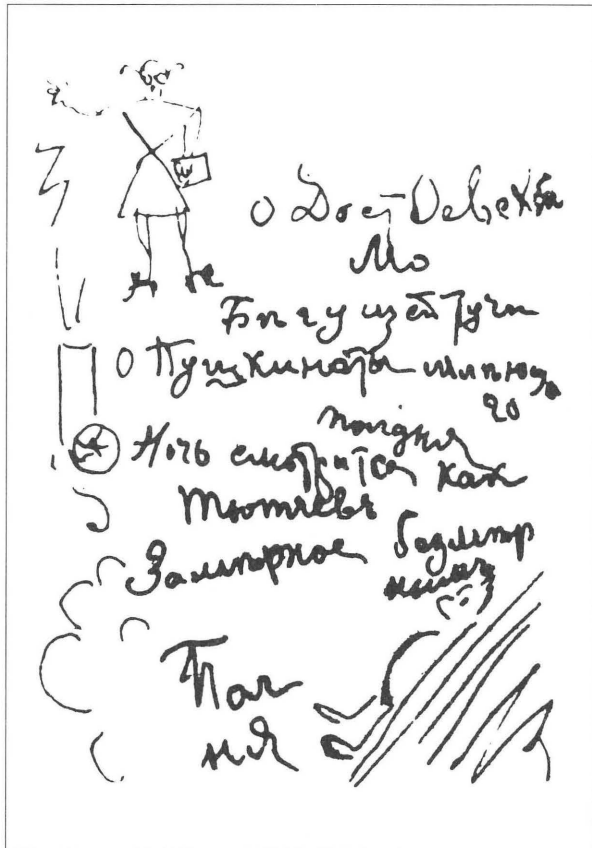 О ДостОевскій
Мо
Бѣгущей Тучи
О Пушкиноты млѣюща
го
полдня
Ночь смотрится как
Тютчевъ
Замѣрное безмѣр
нымъ
Пол
ня